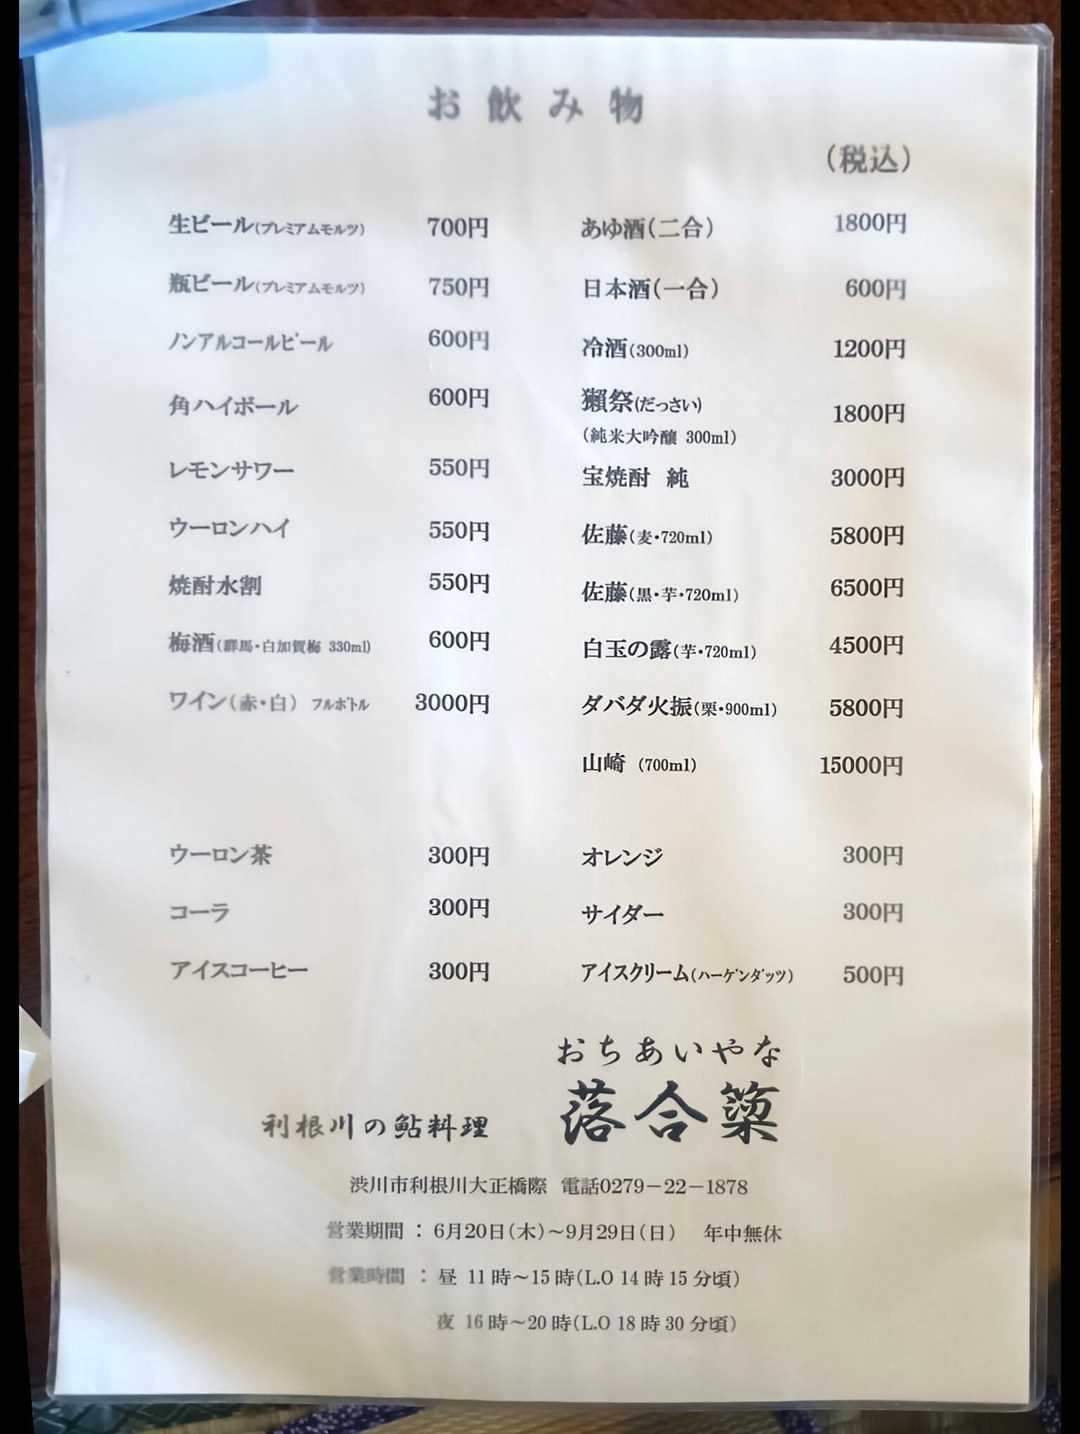 お飲み物
（税込）
生ビール(プレミアムモルツ) 700円
瓶ビール(プレミアムモルツ) 750円
ノンアルコールビール 600円
角ハイボール 600円
レモンサワー 550円
ウーロンハイ 550円
焼酎水割 550円
梅酒(群馬・白加賀梅 330ml) 600円
ワイン（赤・白） フルボトル 3000円
あゆ酒（二合） 1800円
日本酒（一合） 600円
冷酒(300ml) 1200円
獺祭(だっさい) 1800円
(純米大吟醸 300ml)
宝焼酎 純 3000円
佐藤(麦・720ml) 5800円
佐藤(黒・芋・720ml) 6500円
白玉の露(芋・720ml) 4500円
ダバダ火振(栗・900ml) 5800円
山崎 (700ml) 15000円
ウーロン茶 300円
コーラ 300円
アイスコーヒー 300円
オレンジ 300円
サイダー 300円
アイスクリーム(ハーゲンダッツ) 500円
おちあいやな
利根川の鮎料理 落合簗
渋川市利根川大正橋際 電話0279－22－1878
営業期間 ： 6月20日（木）～9月29日（日） 年中無休
営業時間 ： 昼 11時～15時(L.O 14時15分頃)
夜 16時～20時(L.O 18時30分頃)